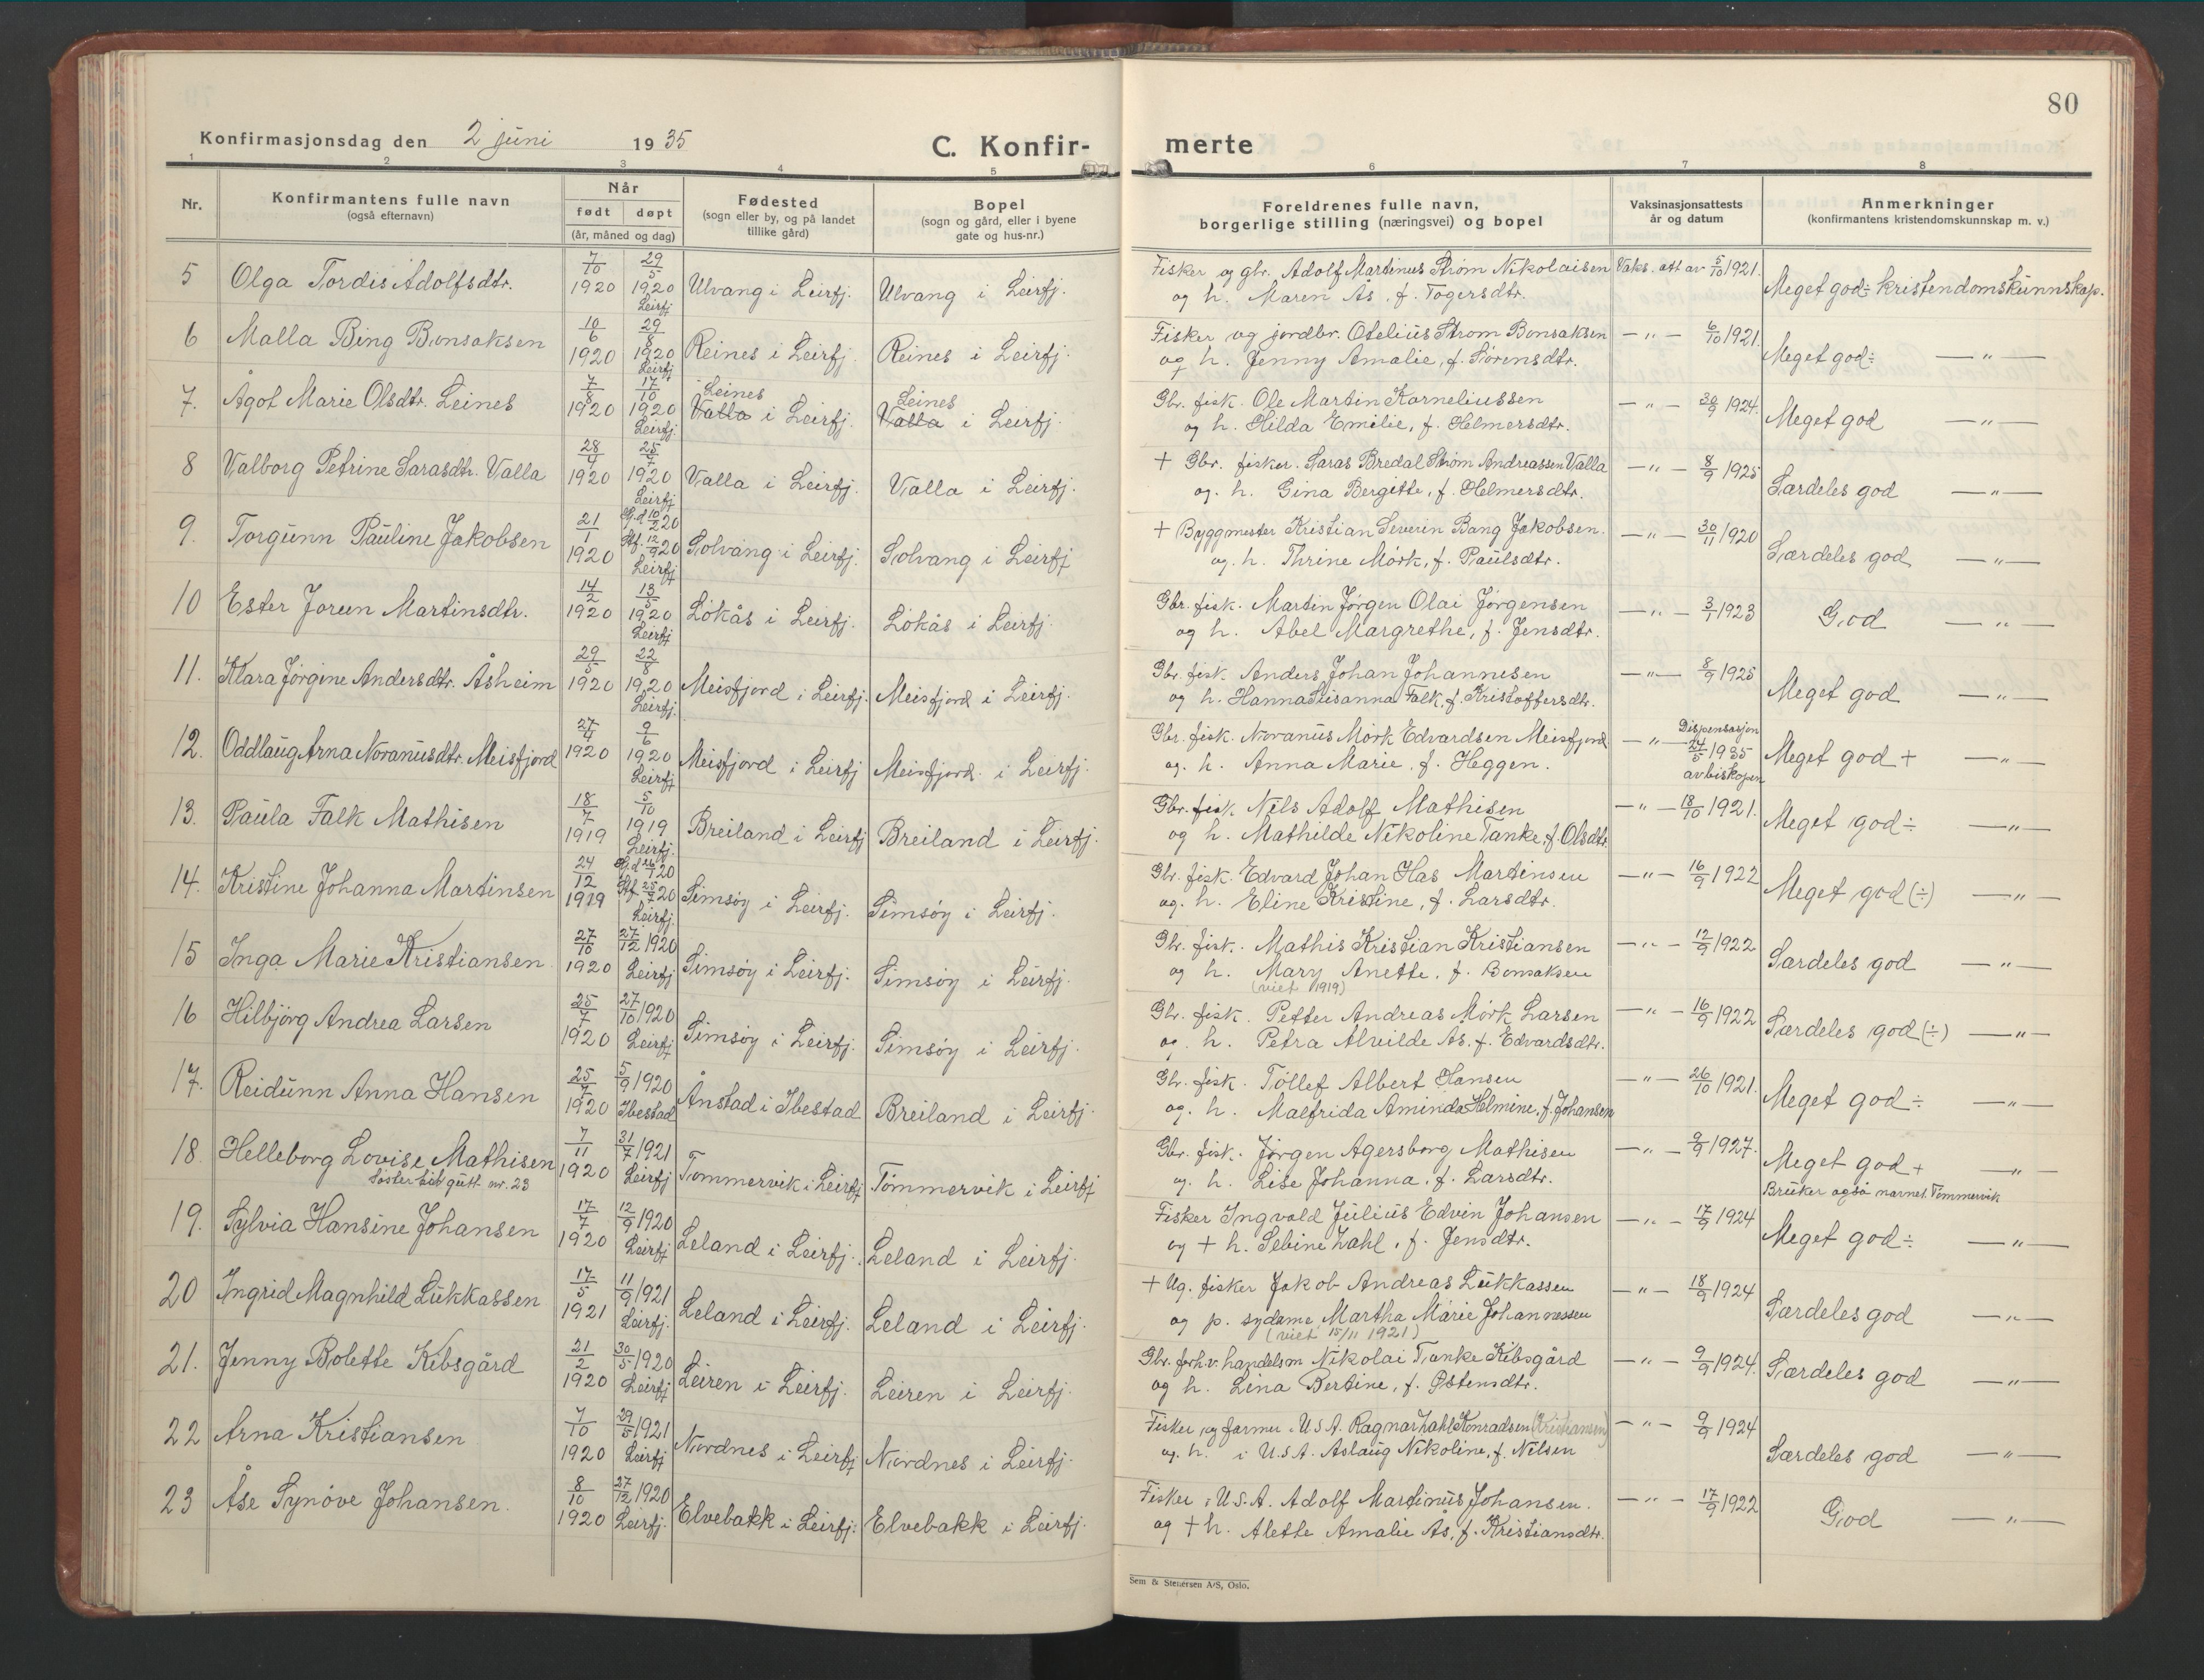 80
Konfirmasjonsdag den 2 juni 1935
C. Konfir-
merte
1 2 3 4 5 6 7 8
Nr.
Konfirmantens fulle navn
(også efternavn)
Når
født døpt
(år, måned og dag)
Fødested
(sogn eller by, og på landet
tillike gård)
Bopel
(sogn og gård, eller i byene
gate og hus-nr.)
Foreldrenes fulle navn,
borgerlige stilling (næringsvei) og bopel
Vaksinasjonsattests
år og datum
Anmerkninger
(konfirmantens kristendomskunnskap m. v.)
5 Olga Tordis Adolfsdtr. 7/10 1920 29/5 1920 Leirfj. Ulvang i Leirfj. Ulvang i Leirfj.
Fisker og gbr. Adolf Martinus Strøm Nikolaisen Vaks. att. av 5/10 1921.
og h. Maren As, f. Togersdtr. Meget god÷ kristendomskunnskap.
6 Malla Bing Bonsaksen 10/6 1920 29/8 1920 Leirfj Reines i Leirfj. Reines i Leirfj.
Fisker og jordbr. Otelius Strøm Bonsaksen —„— 6/10 1921.
og h. Jenny Amalie, f. Sørensdtr. Meget god÷ —„—
7. Ågot Marie Olsdtr. Leines 7/8 1920 17/10 1920 Leirfj. Leines Valla i Leirfj. Leines Valla i Leirfj.
Gbr. fisk. Ole Martin Korneliussen —„— 30/9 1924.
og h. Hilda Emilie, f. Helmersdtr. Meget god —„—
8 Valborg Petrine Sarasdtr. Valla 28/4 1920 25/7 1920 Leirfj Valla i Leirfj. Valla i Leirfj.
+ Gbr. fisker. Saras Bredal Strøm Andreassen Valla —„— 8/9 1925
og. h. Gina Bergitte, f. Helmersdtr. Særdeles god —„—
9. Torgunn Pauline Jakobsen 21/1 1920 Hj.d 10/2 20 Stf. 12/9 20 Leirfj Solvang i Leirfj. Solvang i Leirfj
+ Byggmester Kristian Severin Bang Jakobsen. —„— 30/11 1920
og. h. Thrine Mørk, f. Paulsdtr. Særdeles god —„—
10 Ester Jorun Martinsdtr. 14/2 1920 13/5 1920 Leirfj Løkås i Leirfj. Løkås i Leirfj.
Gbr. fisk. Martin Jørgen Olai Jørgensen —„— 3/1 1923
og h. Abel Margrethe, f. Jensdtr. God —„—
11. Klara Jørgine Andersdtr. Åsheim 29/5 1920 22/8 1920 Leirfj. Meisfjord i Leirfj. Meisfjord i Leirfj.
Gbr. fisk. Anders Johan Johannesen —„— 8/9 1925
og h. Hanna Susanna Falk, f. Kristoffersdtr. Meget god —„—
12. Oddlaug Arna Noranusdtr. Meisfjord 27/4 1920 9/6 1920 Leirfj Meisfjord i Leirfj Meisfjord i Leirfj.
Gbr. fisk. Noranus Mørk Edvardsen Meisfjord —„— Dispensasjon 24/5 1935 av biskopen
og. h. Anna Marie, f. Heggen. Meget god + —„—
13. Paula Falk Mathisen 18/7 1919 5/10 1919 Leirfj. Breiland i Leirfj Breiland i Leirfj.
Gbr. fisk. Nils Adolf Mathisen —„— 18/10 1921.
og h. Mathilde Nikoline Tanke, f. Olsdtr Meget god÷ —„—
14. Kristine Johanna Martinsen 24/12 1919 Hj.d 26/1 20 Stf. 25/7 20 Leirfj. Simsøy i Leirfj. Simsøy i Leirfj.
Gbr. fisk. Edvard Johan Has Martinsen —„— 16/9 1922
og. h. Eline Kristine, f. Larsdtr. Meget god (÷) —„—
15 Inga Marie Kristiansen 27/10 1920 27/12 1920 Leirfj Simsøy i Leirfj. Simsøy i Leirfj.
Gbr. fisk. Mathis Kristian Kristiansen —„— 12/9 1922
og h. Mary Anette, f. Bonsaksen Særdeles god —„—
(viet 1919)
16 Hilbjörg Andrea Larsen 25/7 1920 27/10 1920 Leirfj Simsøy i Leirfj. Simsøy i Leirfj.
Gbr. fisk. Petter Andreas Mørk Larsen —„— 16/9 1922
og. h. Petra Alvilde As. f. Edvardsdtr. Særdeles god (÷) —„—
17. Reidunn Anna Hansen 25/7 1920 5/9 1920 Ibestad Ånstad i Ibestad Breiland i Leirfj.
Gbr. fisk. Tollef Albert Hansen —„— 26/10 1921.
og. h. Malfrida Aminda Helmine, f. Johansen Meget god÷ —„—
18. Helleborg Lovise Mathisen 7/11 1920 31/7 1921 Leirfj Tømmervik i Leirfj Tømmervik i Leirfj
Søster til gutt nr. 23
Gbr. fisk. Jørgen Agersborg Mathisen —„— 9/9 1927.
og. h. Lise Johanna, f. Larsdtr. Meget god + —„—
Bruker også navnet Tømmervik
19. Sylvia Hansine Johansen 17/7 1920 12/9 1920 Leirfj Leland i Leirfj. Leland i Leirfj.
Fisker Ingvald Julius Edvin Johansen —„— 17/9 1924
og + h. Sebine Zahl, f. Jensdtr. Meget god÷ —„—
20 Ingrid Magnhild Lukkassen 17/5 1921 11/9 1921 Leirfj. Leland i Leirfj. Leland i Leirfj.
+ Ug. fisker Jakob Andreas Lukkassen —„— 18/9 1924
og p. sydame Martha Marie Johannessen Særdeles god —„—
(viet 15/11 1921)
21. Jenny Bolette Kibsgård 21/2 1920 30/5 1920 Leirfj Leiren i Leirfj. Leiren i Leirfj.
Gbr. forh.v. handelsm Nikolai Tanke Kibsgård —„— 9/9 1924.
og h. Lina Bertine, f. Østensdtr. Særdeles god —„—
22 Arna Kristiansen 7/10 1920 29/5 1921 Leirfj Nordnes i Leirfj Nordnes i Leirfj.
Fisker og farmer i U.S.A. Ragnar Zahl Konradsen (Kristiansen) —„— 9/9 1924
og. h. i U.S.A. Aslaug Nikoline, f. Nilsen Særdeles god —„—
23 Åse Synøve Johansen. 8/10 1920 27/12 1920 Leirfj. Elvebakk i Leirfj. Elvebakk i Leirfj.
Fisker i U.S.A. Adolf Martinus Johansen. —„— 17/9 1922
og + h. Alette Amalie Ås, f. Kristiansdtr. God —„—
Sem & Stenersen A/S, Oslo.